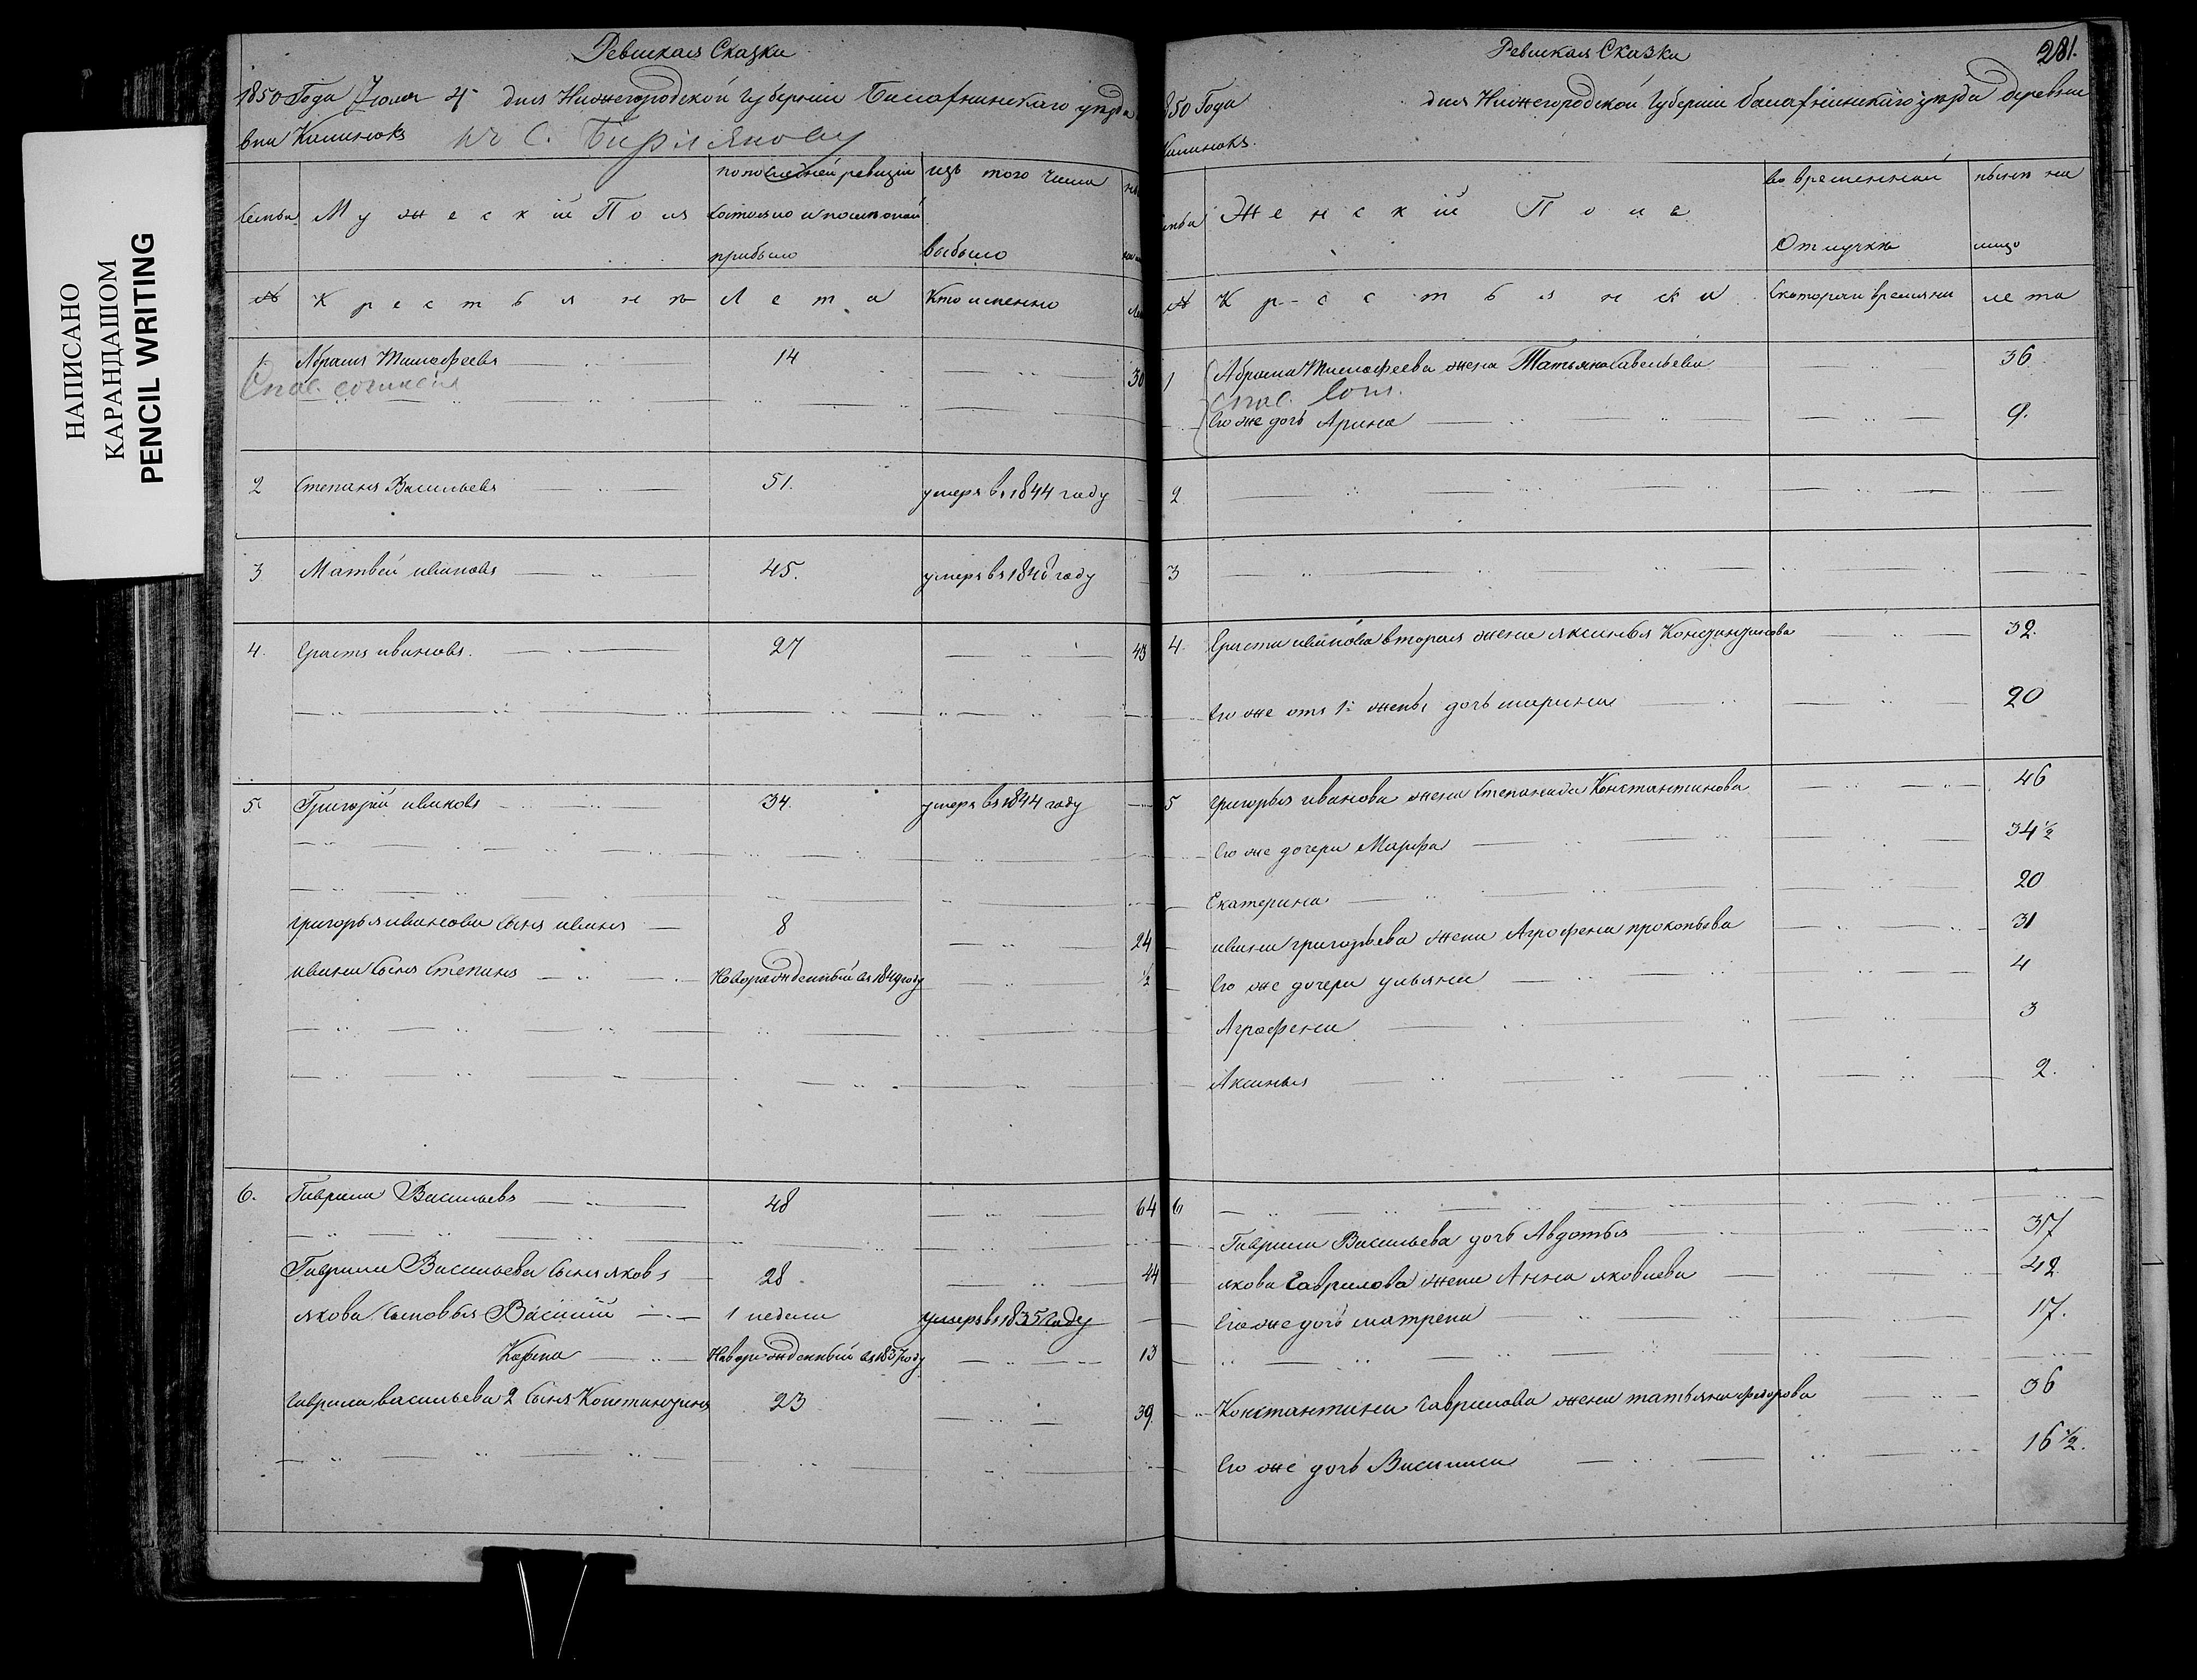 НАПИСАНО
КАРАНДАШОМ
PENCIL WRITING
Ревизская Сказка
1850 Года Июля дня Нижегородской Губернии Балахнинскаго уезда
вни
къ С.
Семьи Мужеский Полъ
по последней ревизии состояло и после оной прибыло
изъ того числа выбыло
№ Крестьянъ Лета Кто именно
1 Абрамъ Тимофеевъ 14 30
Спас. согласия
2 Степанъ Васильевъ 51. умеръ въ 1844 году
3 Матвей ивановъ 45. умеръ въ 1846 году
4. Ерастъ ивановъ. 27 43
5. Григорий ивановъ 34. умеръ въ 1844 году
григорья иванова сынъ иванъ 8 24
ивана сынъ Степанъ Новорожденный въ 1849 году ½
6. Гаврила Васильевъ 48 64
Гаврилы Васильева сынъ яковъ 28 44
якова сыновья Василий 1 недели умеръ въ 1835 году
Карпа Новорожденный въ 1837 году 13
гаврила васильева 2 сынъ Константинъ 23 39
Ревизская Сказка
281.
850 Года дня Нижегородской Губернии балахнинскаго уезда деревни
Женский Полъ
во временной Отлучке
ныне на лицо
№ Крестьянки Скоторого времяни лета
1 Абрама Тимофеева жена Татьяна Савельева 36
Спас. Согл.
Его же дочь Арина 9.
2
3
4. Ераста иванова вторая жена аксинья Константинова 32.
Его же отъ 1й жены дочь марина 20
5 григорья иванова жена степанида Константинова 46
Его же дочери Марфа 34½
Екатерина 20
ивана григорьева жена Аграфена прокопьева 31
Его же дочери ульяна 4
Аграфена 3
Аксинья 2.
6
Гаврилы Васильева дочь Авдотья 37
якова Гаврилова жена Анна яковлева 42
Его же дочь матрена 17.
Константина гаврилова жена татьяна федорова 36
Его же дочь Василиса 16½.